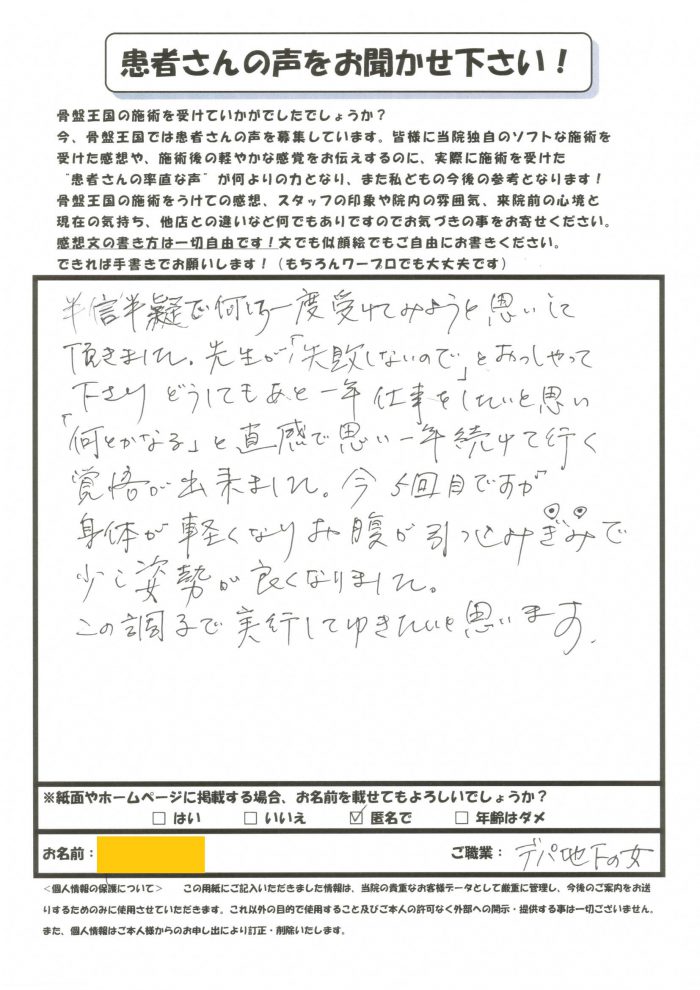 患者さんの声をお聞かせ下さい！
骨盤王国の施術を受けていかがでしたでしょうか？
今、骨盤王国では患者さんの声を募集しています。皆様に当院独自のソフトな施術を
受けた感想や、施術後の軽やかな感覚をお伝えするのに、実際に施術を受けた
"患者さんの率直な声"が何よりの力となり、また私どもの今後の参考となります！
骨盤王国の施術をうけての感想、スタッフの印象や院内の雰囲気、来院前の心境と
現在の気持ち、他店との違いなど何でもありですのでお気づきの事をお寄せください。
感想文の書き方は一切自由です！文でも似顔絵でもご自由にお書きください。
できれば手書きでお願いします！（もちろんワープロでも大丈夫です）
半信半疑で何は一度受けてみようと思いして
頂きました。先生が「失敗しないので」とおっしゃって
下さり どうしてもあと一年 仕事をしたいと思い
「何とかなる」と直感で思い一年続けて行く
覚悟が出来ました。今5回目ですが
身体が軽くなりお腹が引っ込みぎみで
少し姿勢が良くなりました。
この調子で実行してゆきたいと思います。
※紙面やホームページに掲載する場合、お名前を載せてもよろしいでしょうか？
□ はい □ いいえ ☑ 匿名で □ 年齢はダメ
お名前： ご職業： デパ地下の女
＜個人情報の保護について＞ この用紙にご記入いただきました情報は、当院の貴重なお客様データとして厳重に管理し、今後のご案内をお送
りするためのみに使用させていただきます。これ以外の目的で使用すること及びご本人の許可なく外部への開示・提供する事は一切ございません。
また、個人情報はご本人様からのお申し出により訂正・削除いたします。